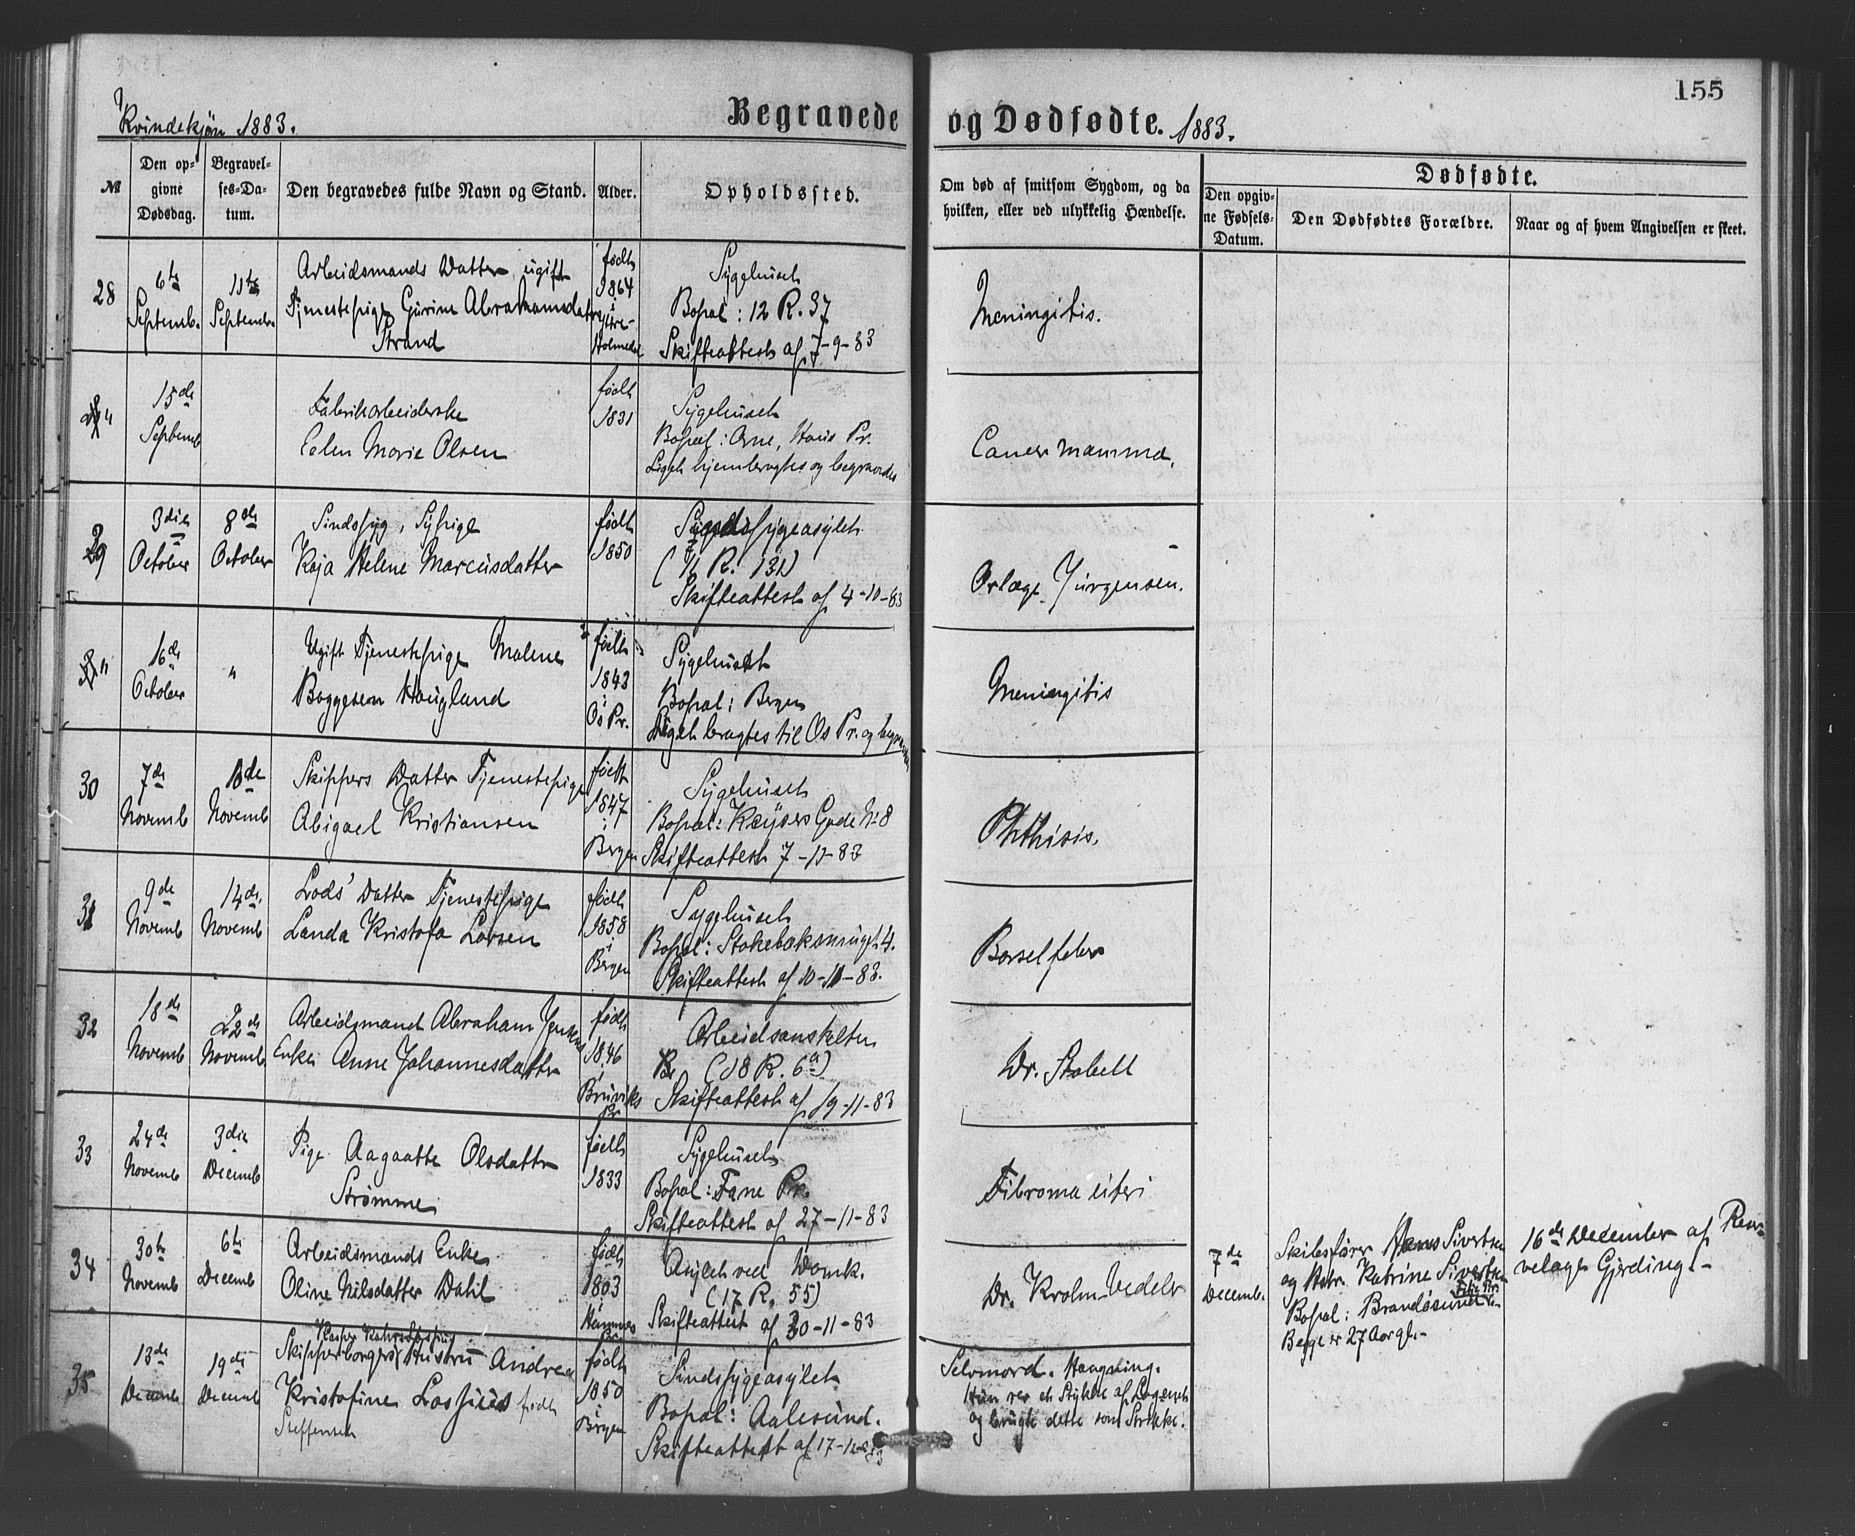 155
Kvindekjøn 1883.
Begravede og Dødfødte. 1883.
№
Den opgivne Dødsdag.
Begravelses-Datum.
Den begravedes fulde Navn og Stand.
Alder.
Opholdssted.
Om død af smitsom Sygdom, og da hvilken, eller ved ulykkelig Hændelse.
Dødfødte.
Den opgivne Fødsels-Datum.
Den Dødfødtes Forældre.
Naar og af hvem Angivelsen er skeet.
28
6te Septemb.
11te Septemb.
Arbeidsmands Datter, ugift
Tjenestepige Gurine Abrahamsdatter
Strand
født
1864
i
Ytre-
Holmedal
Sygehuset
Bopæl: 12 R. 37
Skifteattest af 7-9-83
Meningitis.
"
15de
Septemb
Fabrikarbeiderske
Eelen Marie Olsen
født
1831
Sygehuset
Bopæl: Arne, Haus Pr.
Liget hjembragtes og begravedes
Cancer mamma.
29
3die
October
8de
October
Sindssyg, Sypige
Kaja Helene Marcusdatter
født
1850
Sindssygeasylet
( R. 131)
Skifteattest af 4-10-83
Ovlæge Jürgensen.
"
16de
October
"
Ugift Tjenestepige Malene
Baggesen Haugland
født
1843
i
Os Pr.
Sygehuset
Bopæl: Bergen
Liget bragtes til Os Pr. og
Meningitis
30
7de
Novemb
10de
Novemb
Skippers Datter Tjenestepige
Abigael Kristiansen
født
1847
i
Bergen
Sygehuset
Bopæl: Keysers Gade No 8
Skifteattest 7-11-83
Phthisis.
31
9de
Novemb
14de
Novemb
Lods' Datter Tjenestepige
Landa Kristofa Larsen
født
1858
i
Bergen
Sygehuset
Bopæl: Stakebaksmuget 4.
Skifteattest af 10-11-83.
Barselfeber
32
18de
Novemb
22de
Novemb
Arbeidsmand Abraham
Enke Anne Johannesdatter
født
1846
i
Bruviks
Pr
Arbeidsanstalten
(18 R. 6a)
Skifteattest af 19-11-83
Dr. Stabell
33
24de
Novemb
3die
Decemb
Pige Aagaatte Olsdatter
Strømme
født
1833
Sygehuset
Bopæl: Fane Pr.
Skifteattest af 27-11-83
Fibroma uteri
34
30te
Novemb
6te
Decemb
Arbeidsmands Enke
Oline Nilsdatter Dahl
født
1803
i
Hammers
Pr
Asylet ved Domk.
(17 R. 55)
Skifteattest af 30-11-83
Dr. Krohn Vedeler
7de
Decemb.
Skibsfører Hans Sivertsen
og Hstr. Katrine Sivertsen
Bopæl: Brandasund
Begge er 27 Aar gl.
16de December af
Gjerding
35
13de
Decemb
19de
Decemb
Skipperborgers Hustru Andrea
Kristofine født
Steffensen
født
1850
i
Bergen
Sindssygeasylet
Bopæl: Aalesund.
Skifteattest af 17-12-83
Selvmord. Hængning.
Hun rev et Stykke af Lagenet
og brugte dette som Strikke.